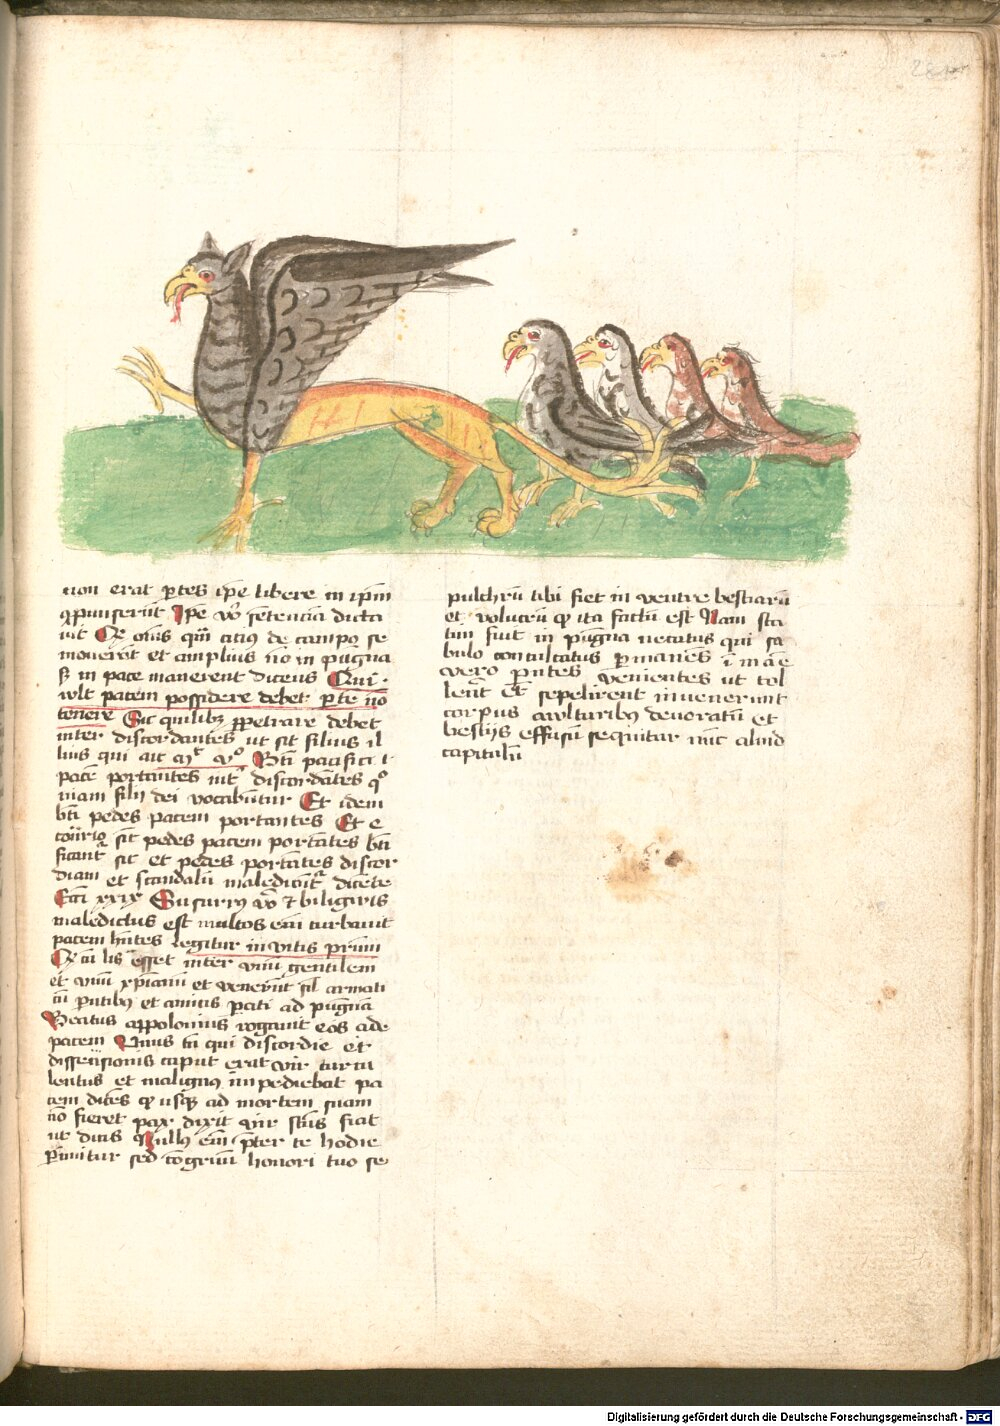 non erat partes ipe libere in ipm
Ipe vo sentencia dicta
de campo se
moverent et amplius no in pugna
in pace manerent dicens Qui
vult pacem possidere debet pte no
tenere Sic quilibz perpetrare debet
inter discordantes ut sit filius il
lius qui ait Bti pacifici i
pace portantes int discordates qo
niam filij dei vocabuntur Et idem
bti pedes pacem portantes Et e
sit pedes pacem portates bti
ficant sic et pedes portates discor
diam et scandalu maledicunt dicete
Ecci xxix Susurro vo et biligwis
maledictus est multos eni turbavit
pacem hntes Legitur in vitis primi
cu lis esset inter unu gentilem
et unu xpianu et venerut sil armati
cu pntibus et amicis pati ad pugna
Beatus appolonius rogavit eos ade
pacem Unus tn qui discordie et
dissensionis caput erat vir turcu
lentus et malignus impediebat pa
cem dices qd usque ad mortem suam
no fieret pax dixit vir stus fiat
ut dicis Nullus eni pter te hodie
pimitur sed congruu honori tuo se
pulchru tibi fiet in ventre bestiaru
et volucru qd ita factu est Nam sta
tim fuit in pugna necatus qui sa
bulo conculcatus pmanes i mae
vero pntes venientes ut tol
lent et sepelirent invenerunt
corpus a wlturibus devoratu et
bestijs effusu sequitur nuc aliud
capitulu
Digitalisierung gefördert durch die Deutsche Forschungsgemeinschaft - DFG